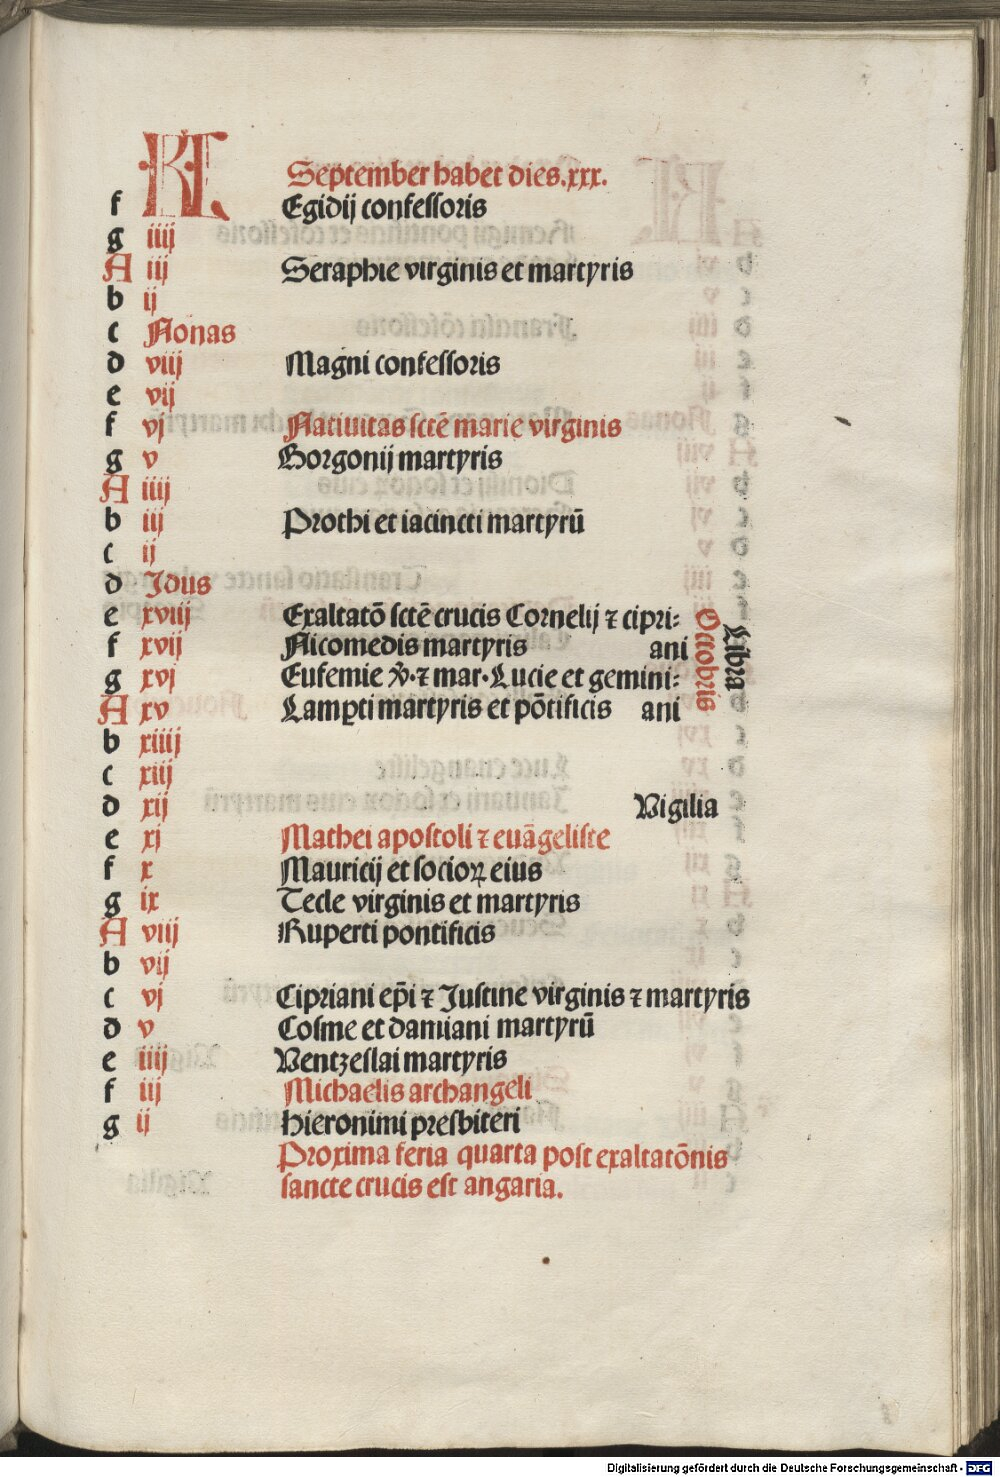 KL September habet dies.xxx.
f Egidij confessoris
g iiij
A iij Seraphie virginis et martyris
b ij
c Nonas
d viij Magni confessoris
e vij
f vj Natiuitas sctē marie virginis
g v Gorgonij martyris
A iiij
b iij Prothi et iacincti martyrū
c ij
d Idus
e xviij Exaltatō sctē crucis Cornelij ⁊ cipri⸗
f xvij Nicomedis martyris ani
g xvj Eufemie v̄.⁊ mar.Lucie et gemini⸗
A xv Lamꝑti martyris et pōtificis ani
Octobris
Libra
b xiiij
c xiij
d xij Vigilia
e xj Mathei apostoli ⁊ euāgeliste
f x Mauricij et socioꝝ eius
g ix Tecle virginis et martyris
A viij Ruperti pontificis
b vij
c vj Cipriani ep̄i ⁊ Justine virginis ⁊ martyris
d v Cosme et damiani martyrū
e iiij Ventzeslai martyris
f iij Michaelis archangeli
g ij Hieronimi presbiteri
Proxima feria quarta post exaltatōnis
sancte crucis est angaria.
Digitalisierung gefördert durch die Deutsche Forschungsgemeinschaft - DFG